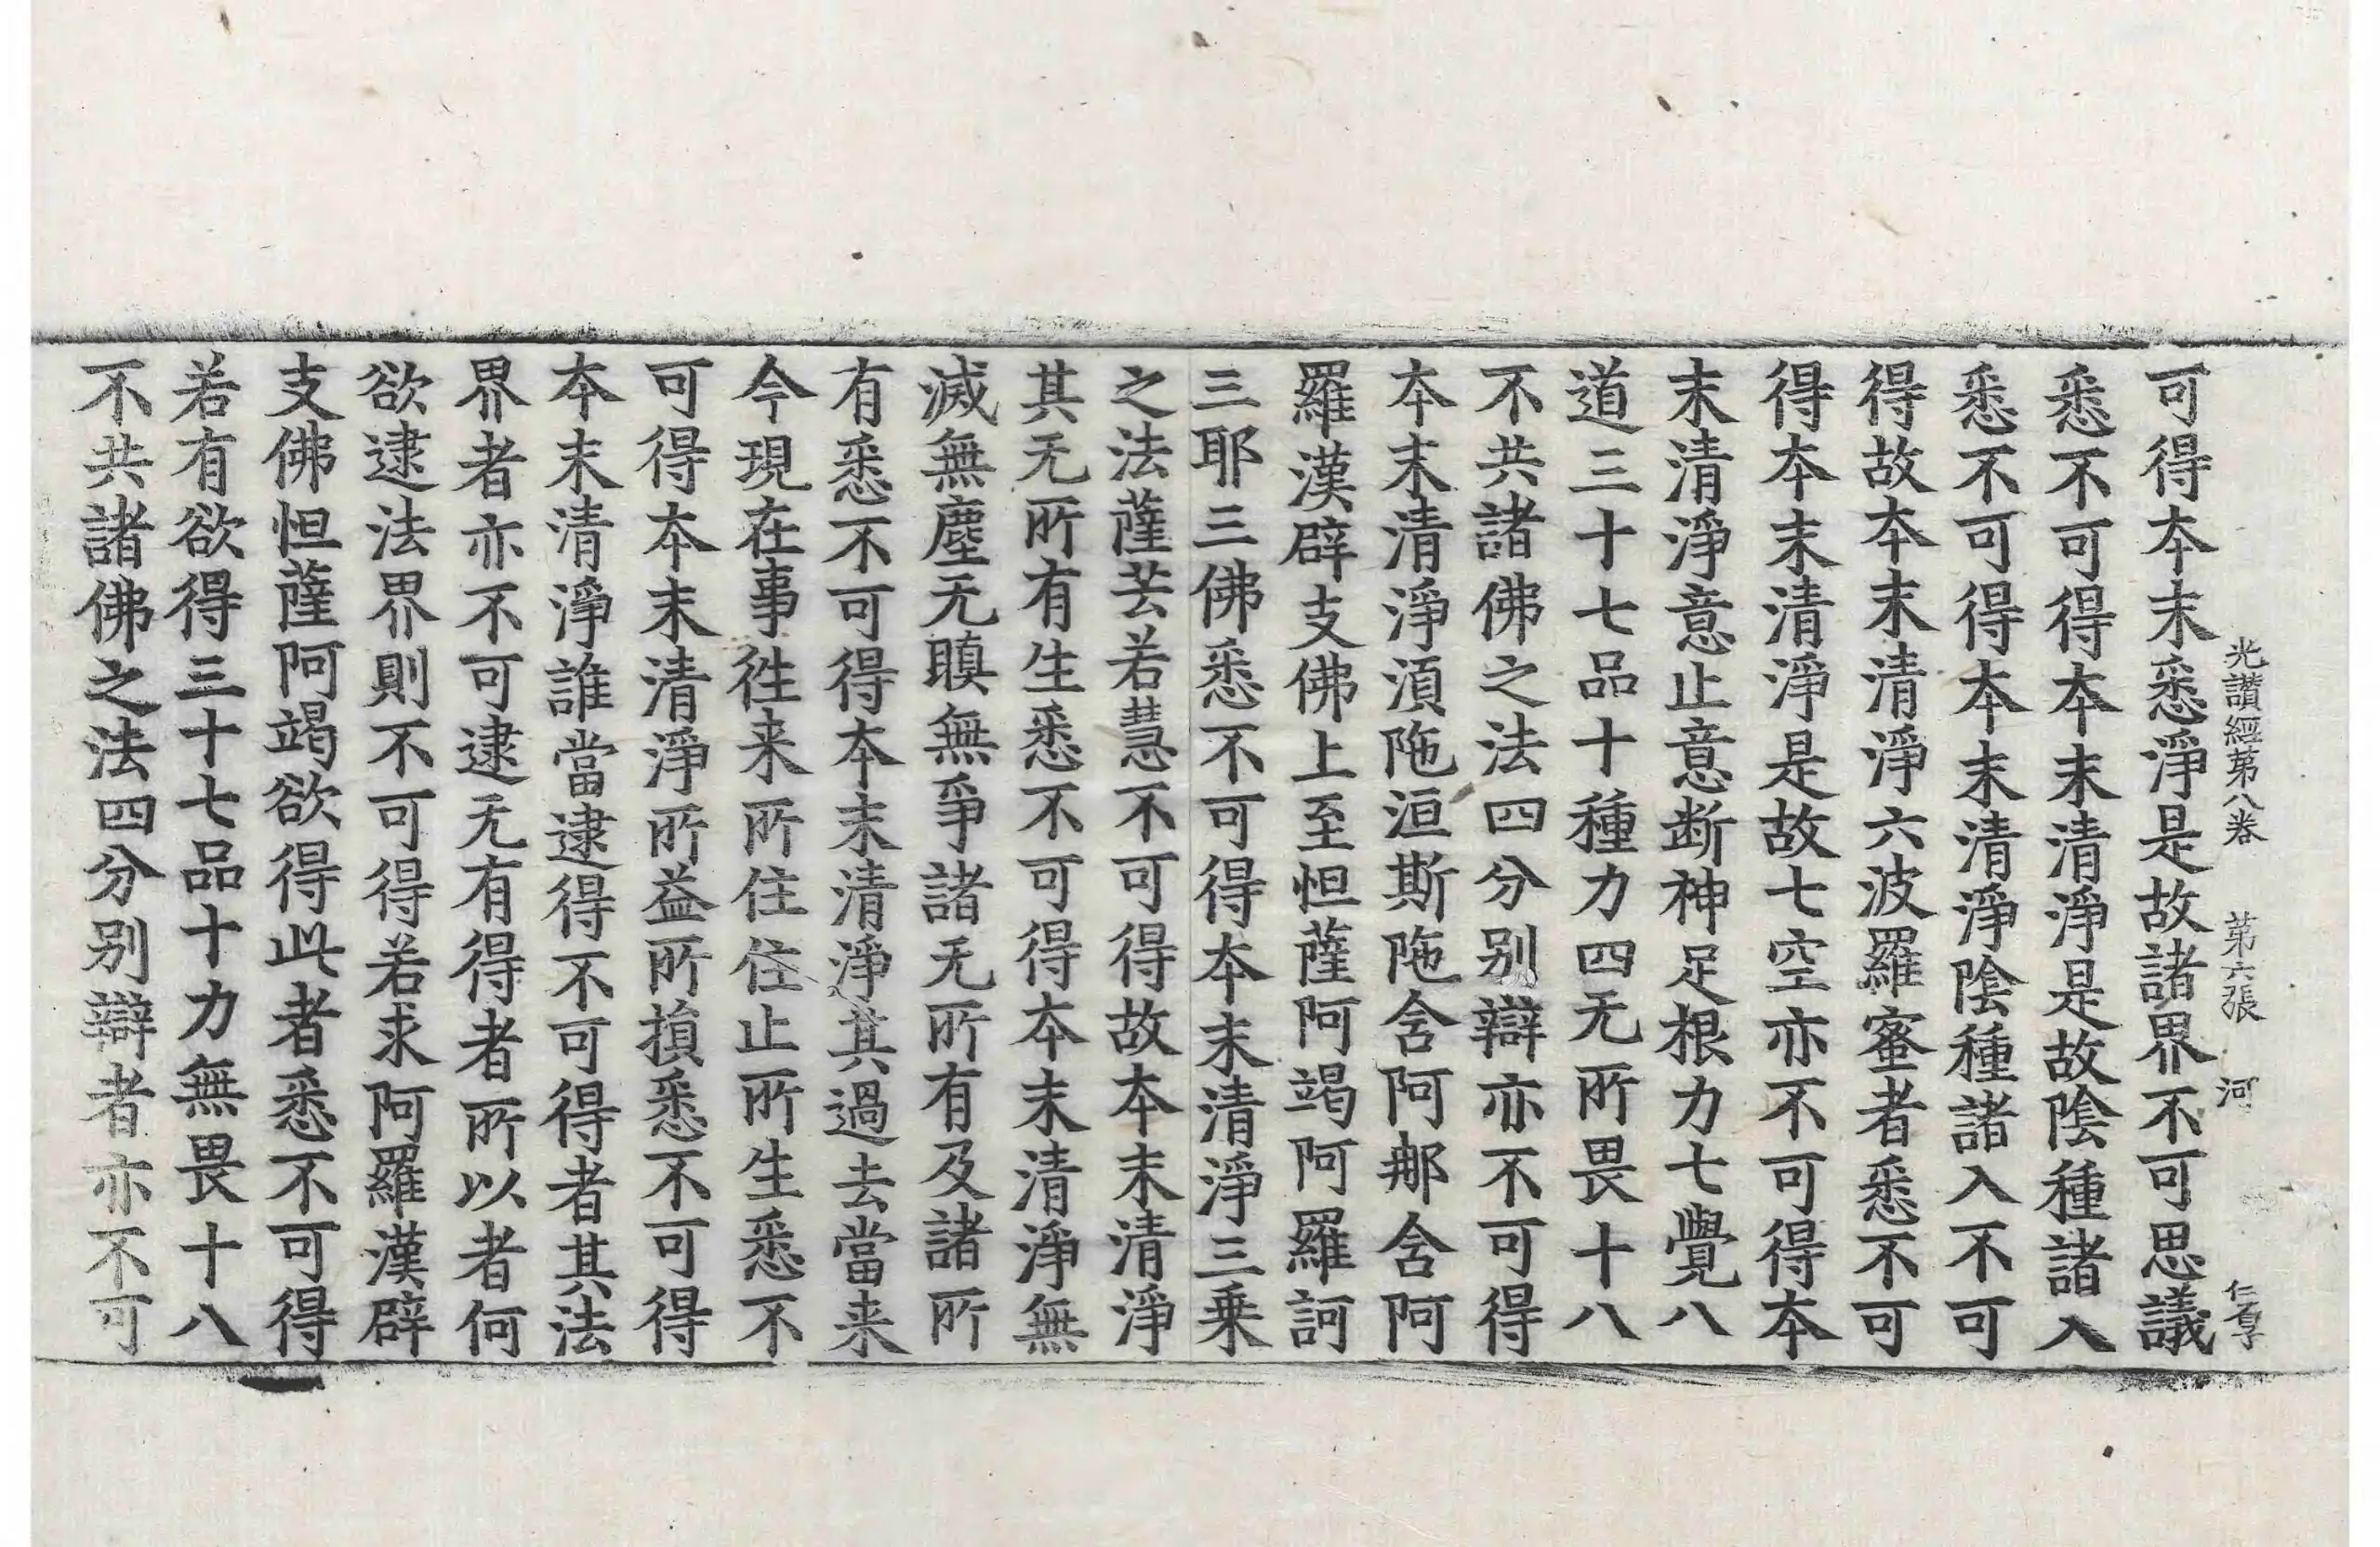 光讚經第八卷 第六張 河 仁孚
可得本末悉淨是故諸界不可思議
悉不可得本末清淨是故陰種諸入
悉不可得本末清淨陰種諸入不可
得故本末清淨六波羅蜜者悉不可
得本末清淨是故七空亦不可得本
末清淨意止意断神足根力七覺八
道三十七品十種力四无所畏十八
不共諸佛之法四分别辯亦不可得
本末清淨湏陁洹斯陁含阿那含阿
羅漢辟支佛上至怛薩阿竭阿羅訶
三耶三佛悉不可得本末清淨三乗
之法薩芸若慧不可得故本末清淨
其无所有生悉不可得本末清淨無
滅無塵无瞋無爭諸无所有及諸所
有悉不可得本末清淨其過去當来
今現在事徃来所住住止所生悉不
可得本末清淨所益所損悉不可得
本末清淨誰當逮得不可得者其法
界者亦不可逮无有得者所以者何
欲逮法界則不可得若求阿羅漢辟
支佛怛薩阿竭欲得此者悉不可得
若有欲得三十七品十力無畏十八
不共諸佛之法四分别辯者亦不可